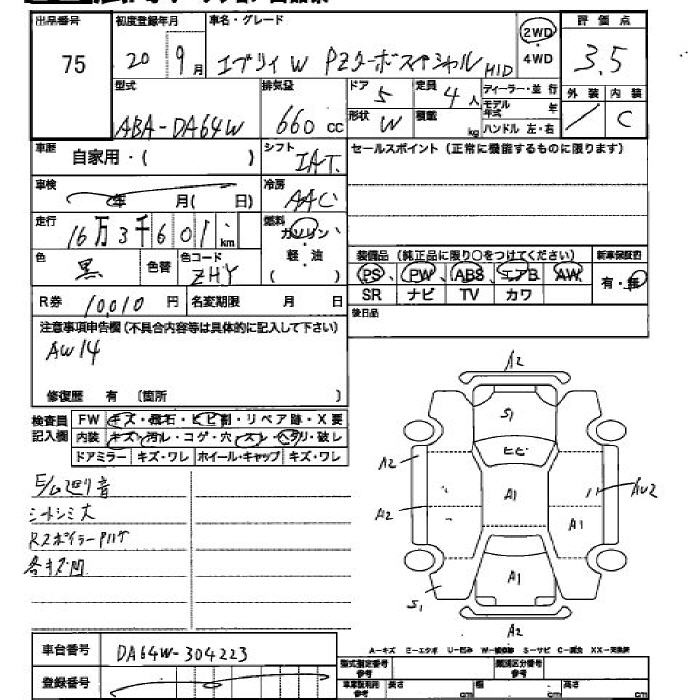 出品番号 初度登録年月 車名・グレード 評価点
75 20 9月 エブリイW PZターボスペシャル HID 2WD 3.5
4WD
型式 排気量 ドア 5 定員 4人 ディーラー・並行 外装 内装
ABA-DA64W 660cc 形状 W 積載 kg モデル年式 年 / C
ハンドル 左・右
車歴 自家用・( ) シフト IAT セールスポイント (正常に機能するものに限ります)
車検 年 月( 日) 冷房 AAC
走行 16万3千601 km 燃料 ガソリン・軽・油 ( )
色 黒 色替 色コード ZHY 装備品 (純正品に限り○をつけてください) 新車保証書
PS、PW、ABS、エアB、AW、 有・無
R券 10,010円 名変期限 月 日 SR ナビ TV カワ
注意事項申告欄 (不具合内容等は具体的に記入して下さい) 後日品
AW14
修復歴 有 〔箇所 〕
検査員 FW キズ・飛石・ヒビ割・リペア跡・X要
記入欄 内装 キズ・汚レ・コゲ・穴・スレ・ヘタリ・破レ
ドアミラー キズ・ワレ ホイール・キャップ キズ・ワレ
E/G廻り音
シートシミ大
Rスポイラー
各キズ凹
A2
S1
ヒビ
A2
A1
AU2
A2
A1
A1
S1
A2
車台番号 DA64W-304223
登録番号
A-キズ E-エクボ U-凹み W-補修跡 S-サビ C-腐食 XX-交換済
型式指定番号 参考 類別区分番号 参考
車庫証明用 参考 長さ cm 幅 cm 高さ cm